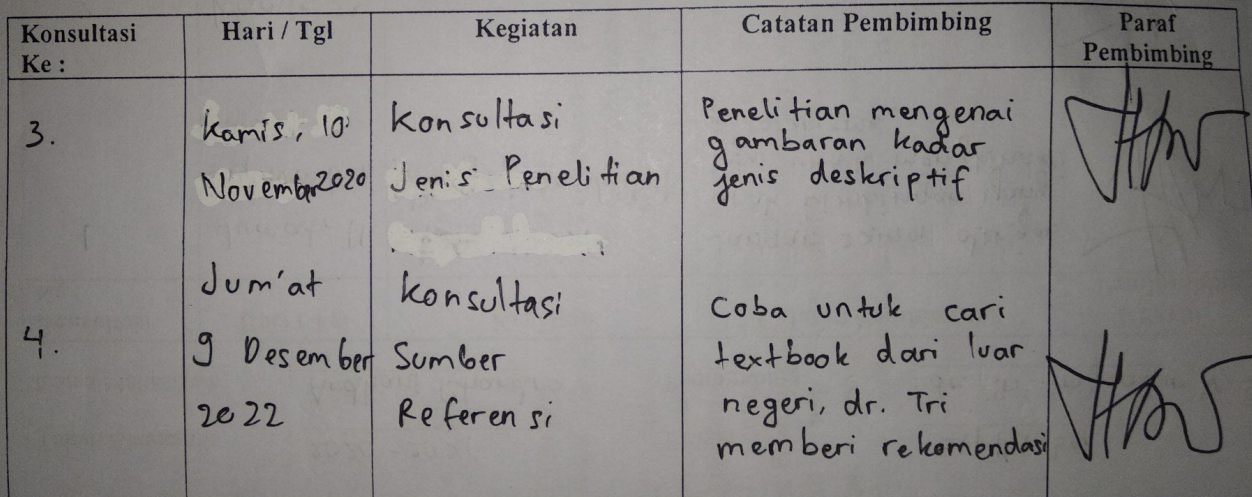 Konsultasi Ke :
Hari / Tgl
Kegiatan
Catatan Pembimbing
Paraf Pembimbing
3.
Kamis, 10
November 2020
Konsultasi
Jenis Penelitian
Penelitian mengenai
gambaran kadar
jenis deskriptif
4.
Jum'at
9 Desember
2022
Konsultasi
Sumber
Referensi
Coba untuk cari
textbook dari luar
negeri, dr. Tri
memberi rekomendasi